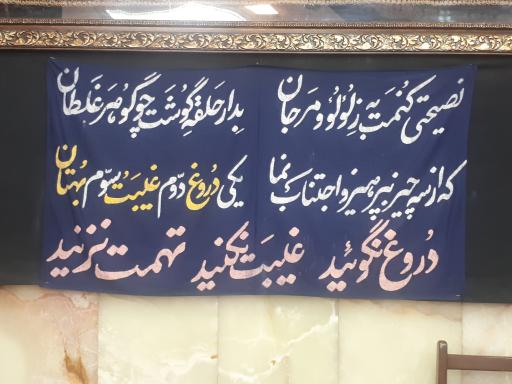 نصیحتی کنمت به ز لؤلؤ و مرجان بدار حلقه گوشت چو گوهر غلطان
که از سه چیز بپرهیز و اجتناب نما یکی دروغ دوم غیبت سوم بهتان
دروغ نگوئید غیبت نکنید تهمت نزنید